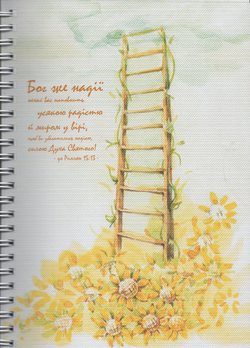 Бог же надії
нехай вас наповнить
усякою радістю
й миром у вірі,
щоб ви збагатились надією,
силою Духа Святого!
до Римлян 15:13